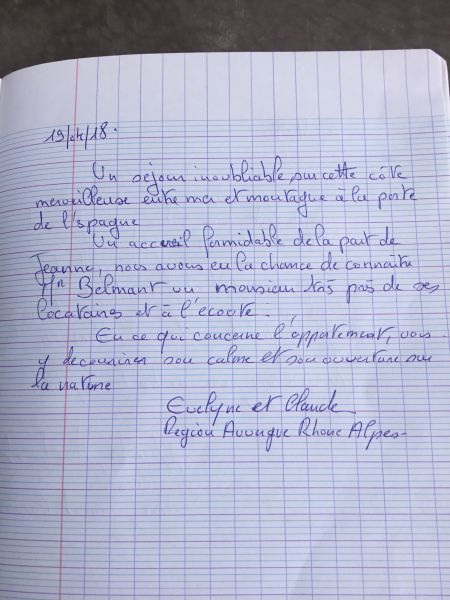 19/04/18.
Un séjour inoubliable sur cette côte
merveilleuse entre mer et montagne à la porte
de l'Espagne
Un accueil formidable de la part de
Jeanne, nous avons eu la chance de connaître
Mr Belmant un monsieur très près de ses
locataires et à l'écoute.
En ce qui concerne l'appartement, vous
y découvrirez son calme et son ouverture sur
la nature
Evelyne et Claude
Région Auvergne Rhone Alpes-